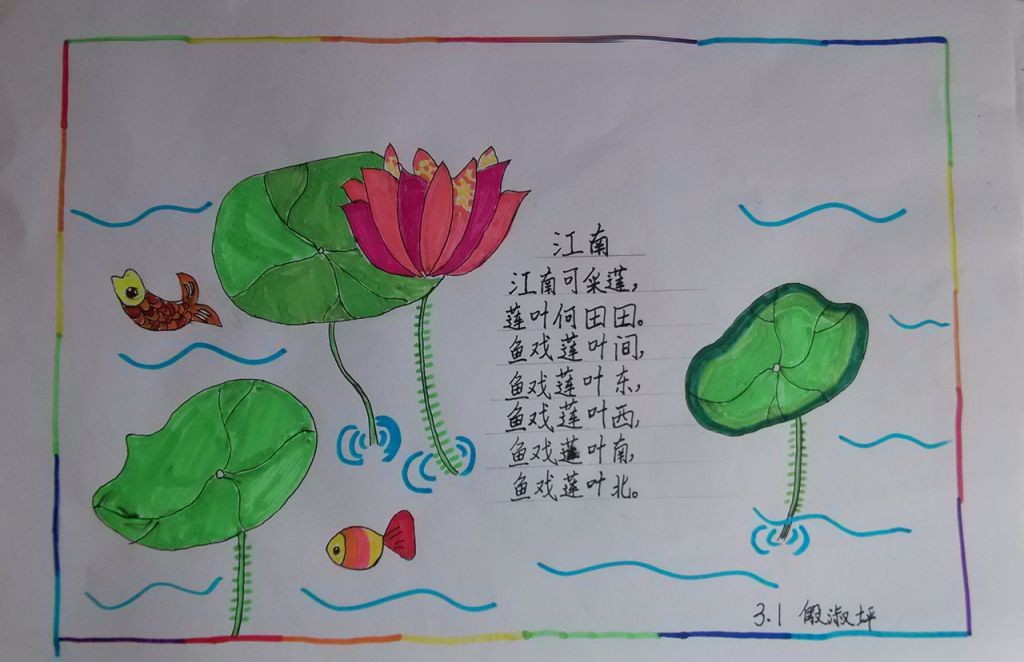 江南
江南可采莲，
莲叶何田田。
鱼戏莲叶间，
鱼戏莲叶东，
鱼戏莲叶西，
鱼戏莲叶南，
鱼戏莲叶北。
3.1 殷淑坪